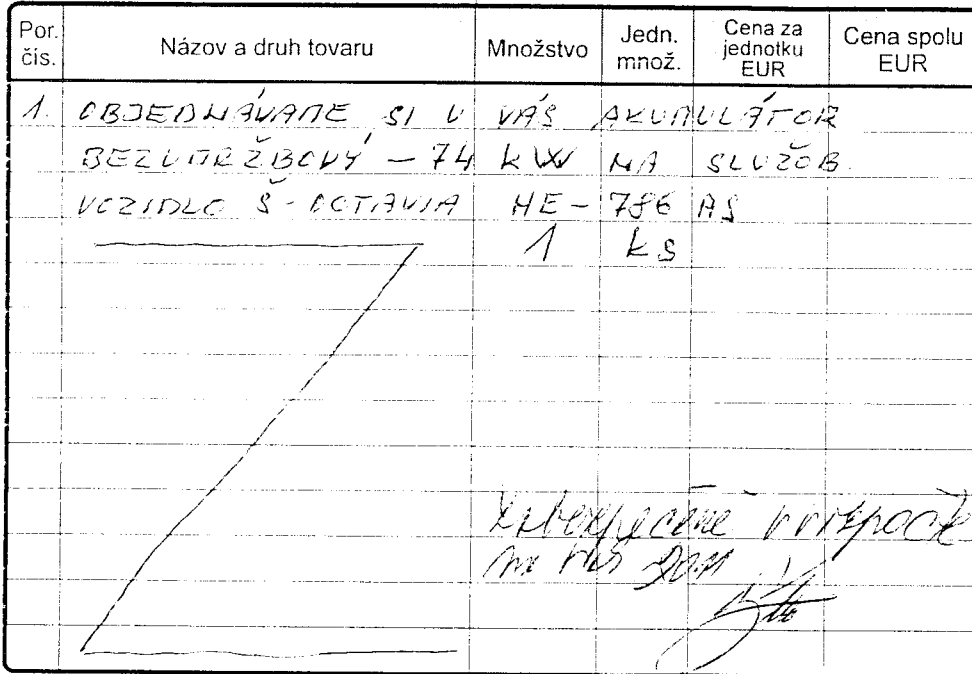 Por. čís. Názov a druh tovaru Množstvo Jedn. množ. Cena za jednotku EUR Cena spolu EUR
1. OBJEDNÁVAME SI U VÁS AKUMULÁTOR
BEZÚDRŽBOVÝ - 74 kW NA SLUŽOB.
VOZIDLO Š-OCTAVIA HE-786 AS
1 ks
zabezpečené v rozpočte
na rok 2011